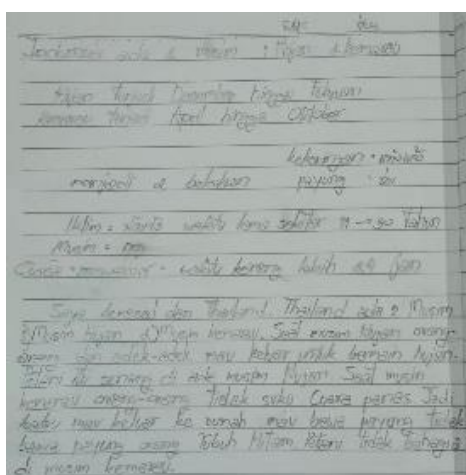 ฤดู ฝน
Indonesia ada 2 Musim : Hujan & kemarau
Hujan terjadi Desember hingga Februari
kemarau terjadi April hingga Oktober
kekeringan =
menjadi 2 bahasan payung = ร่ม
Iklim = waktu lama sekitar 11 → 30 Tahun
Musim = ฤดู
Cuaca = waktu kurang lebih 24 jam
Saya berasal dari Thailand. Thailand ada 2 Musim
1) Musim hujan 2) Musim kemarau. Saat musim hujan orang-
orang dan adek-adek mau keluar untuk bermain hujan.
di senang di ada musim hujan. Saat musim
kemarau orang-orang tidak suka Cuaca panas Jadi
kalau mau keluar ke rumah mau bawa payung tidak
bawa payung orang Tubuh Hitam tidak bahagia
di musim kemarau.